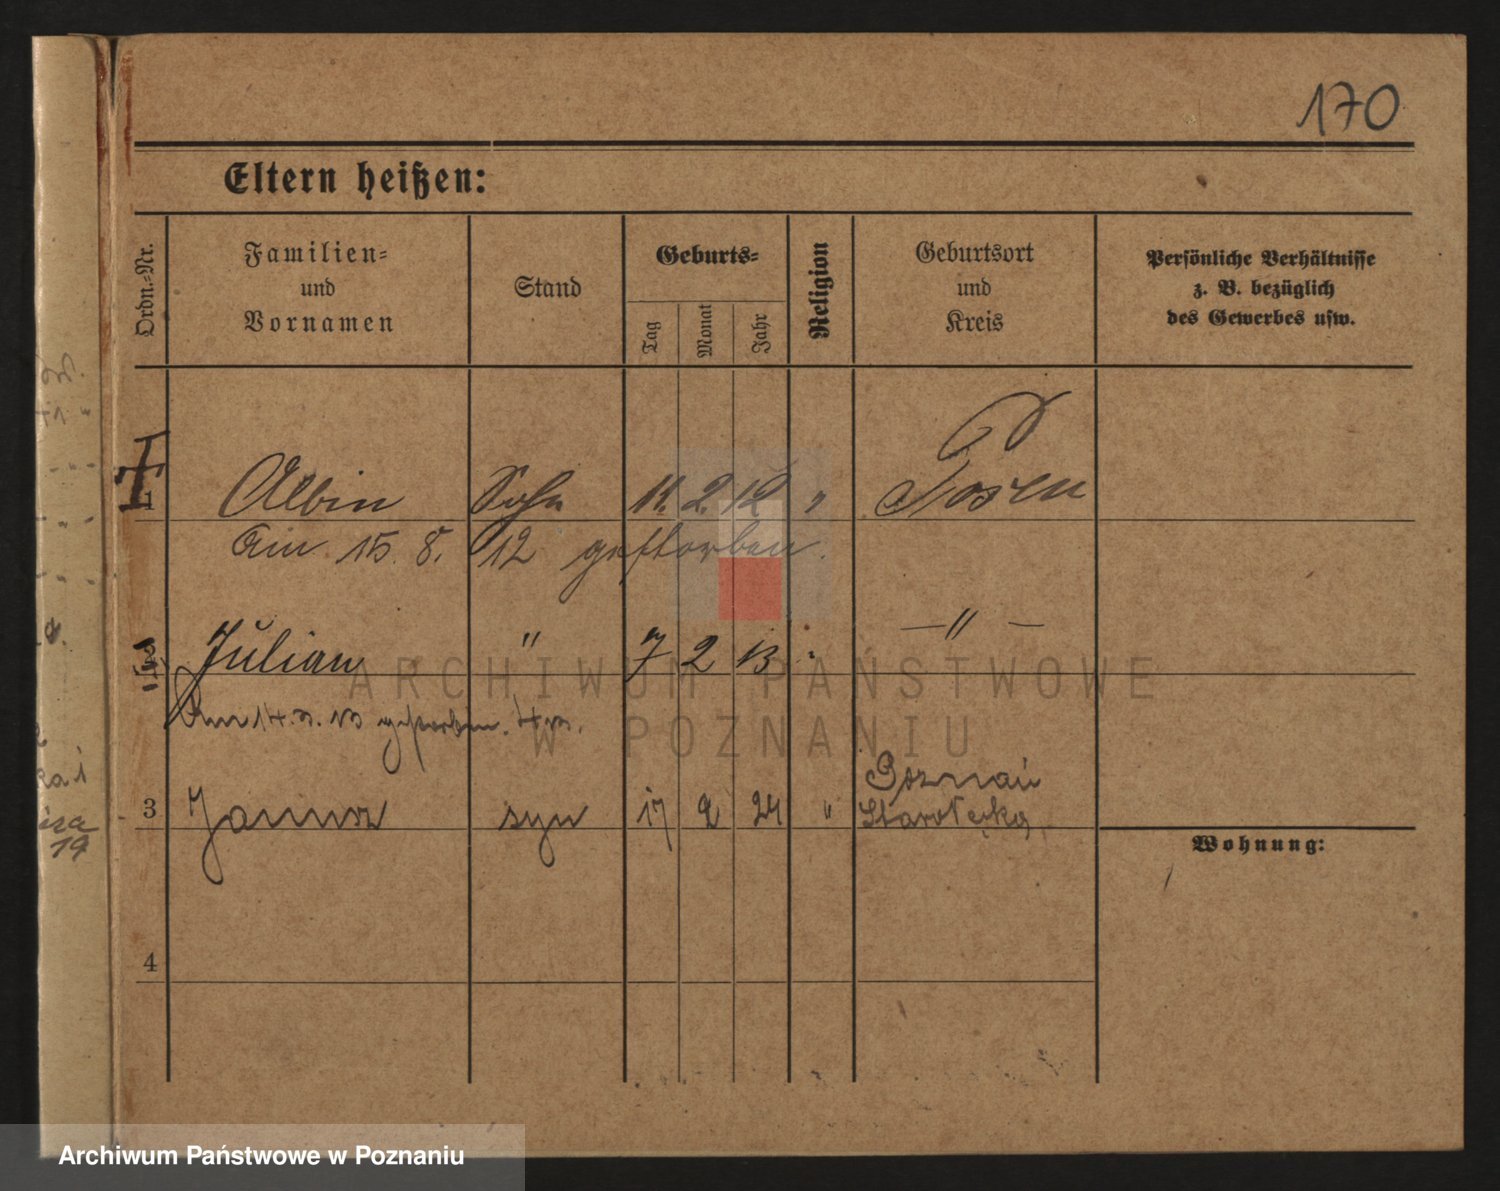 170
Eltern heißen:
Ordn.-Nr.
Familien-
und
Vornamen
Stand
Geburts-
Tag
Monat
Jahr
Religion
Geburtsort
und
Kreis
Persönliche Verhältnisse
z. B. bezüglich
des Gewerbes usw.
Albin Sohn 11. 2. 12 " Posen
Am 15. 8. 12 gestorben.
Julian " 7 2 13 " — " —
Am 14. 3. 13 gestorben.
Poznań
3 Janusz syn 17 2 24 " Starołęcka
Wohnung:
4
ARCHIWUM PAŃSTWOWE
W POZNANIU
Archiwum Państwowe w Poznaniu